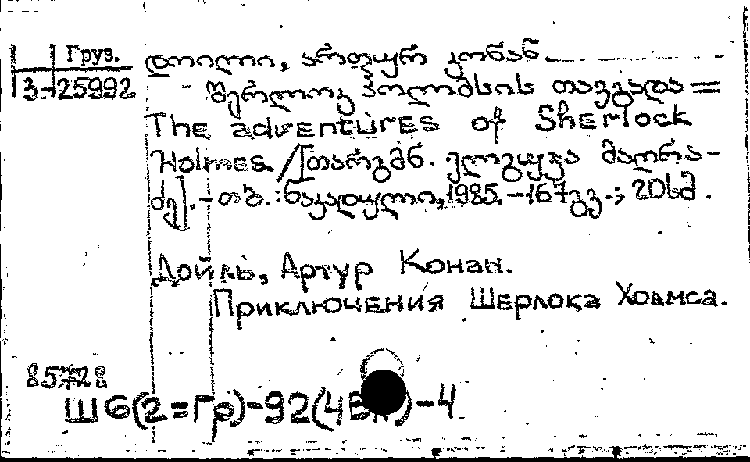 Груз.
3-25992
დოილი, ართურ კონან.
შერლოკ ჰოლმსის თავგადა=
The adventures of Sherlock
Holmes /[თარგმნ. ელგუჯა მაღრა-
ძე]. - თბ. : ნაკადული, 1985. - 167 გვ. ; 20 სმ.
Дойль, Артур Конан.
Приключения Шерлока Холмса.
85728
Ш6(2=Гр)-92(4В )-4